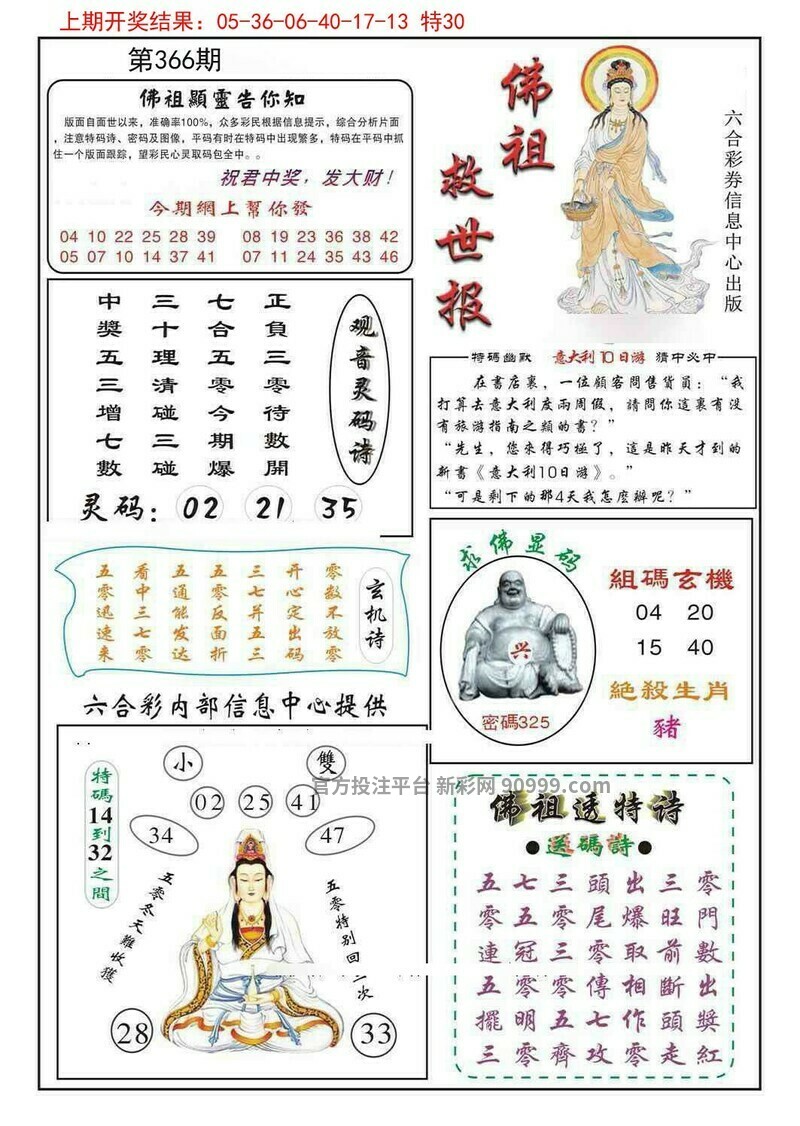 上期开奖结果：05-36-06-40-17-13 特30
第366期
佛祖顯靈告你知
版面自面世以来，准确率100%，众多彩民根据信息提示，综合分析片面
，注意特码诗、密码及图像，平码有时在特码中出现繁多，特码在平码中抓
住一个版面跟踪，望彩民心灵取码包全中。。
祝君中奖，发大财！
今期網上幫你發
04 10 22 25 28 39 08 19 23 36 38 42
05 07 10 14 37 41 07 11 24 35 43 46
佛祖
救世报
六合彩券信息中心出版
观音灵码诗
正負三零待數開
七合五零今期爆
三十理清碰三碰
中獎五三增七數
灵码：02 21 35
特码幽默 意大利10日游 猜中必中
在書店裏，一位顧客問售貨員：“我
打算去意大利度兩周假，請問你這裏有没
有旅游指南之類的書？”
“先生，您來得巧極了，這是昨天才到的
新書《意大利10日游》。”
“可是剩下的那4天我怎麼辦呢？”
玄机诗
零数不放零
开心定出码
三七并五三
五零反面折
五通能发达
看中三七零
五零迅速来
六合彩内部信息中心提供
求佛显码
兴
密碼325
組碼玄機
04 20
15 40
絶殺生肖
豬
小 雙
官方投注平台 新彩网 90999.com
02 25 41
34 47
特碼14到32之間
五零冬天難收獲
五零特别回二次
28 33
佛祖透特诗
●送碼詩●
五七三頭出三零
零五零尾爆旺門
連冠三零取前數
五零零傳相斷出
擺明五七作頭獎
三零齊攻零走紅